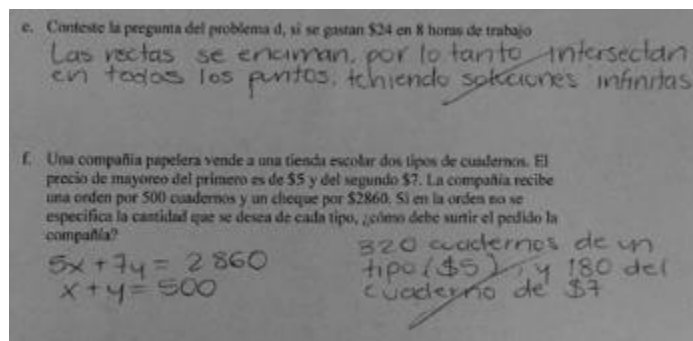 e. Conteste la pregunta del problema d, si se gastan $24 en 8 horas de trabajo
Las rectas se enciman, por lo tanto intersectan
en todos los puntos, teniendo soluciones infinitas
f. Una compañía papelera vende a una tienda escolar dos tipos de cuadernos. El
precio de mayoreo del primero es de $5 y del segundo $7. La compañía recibe
una orden por 500 cuadernos y un cheque por $2860. Si en la orden no se
especifica la cantidad que se desea de cada tipo, ¿cómo debe surtir el pedido la
compañía?
5x + 7y = 2860
x + y = 500
320 cuadernos de un
tipo ($5), y 180 del
cuaderno de $7